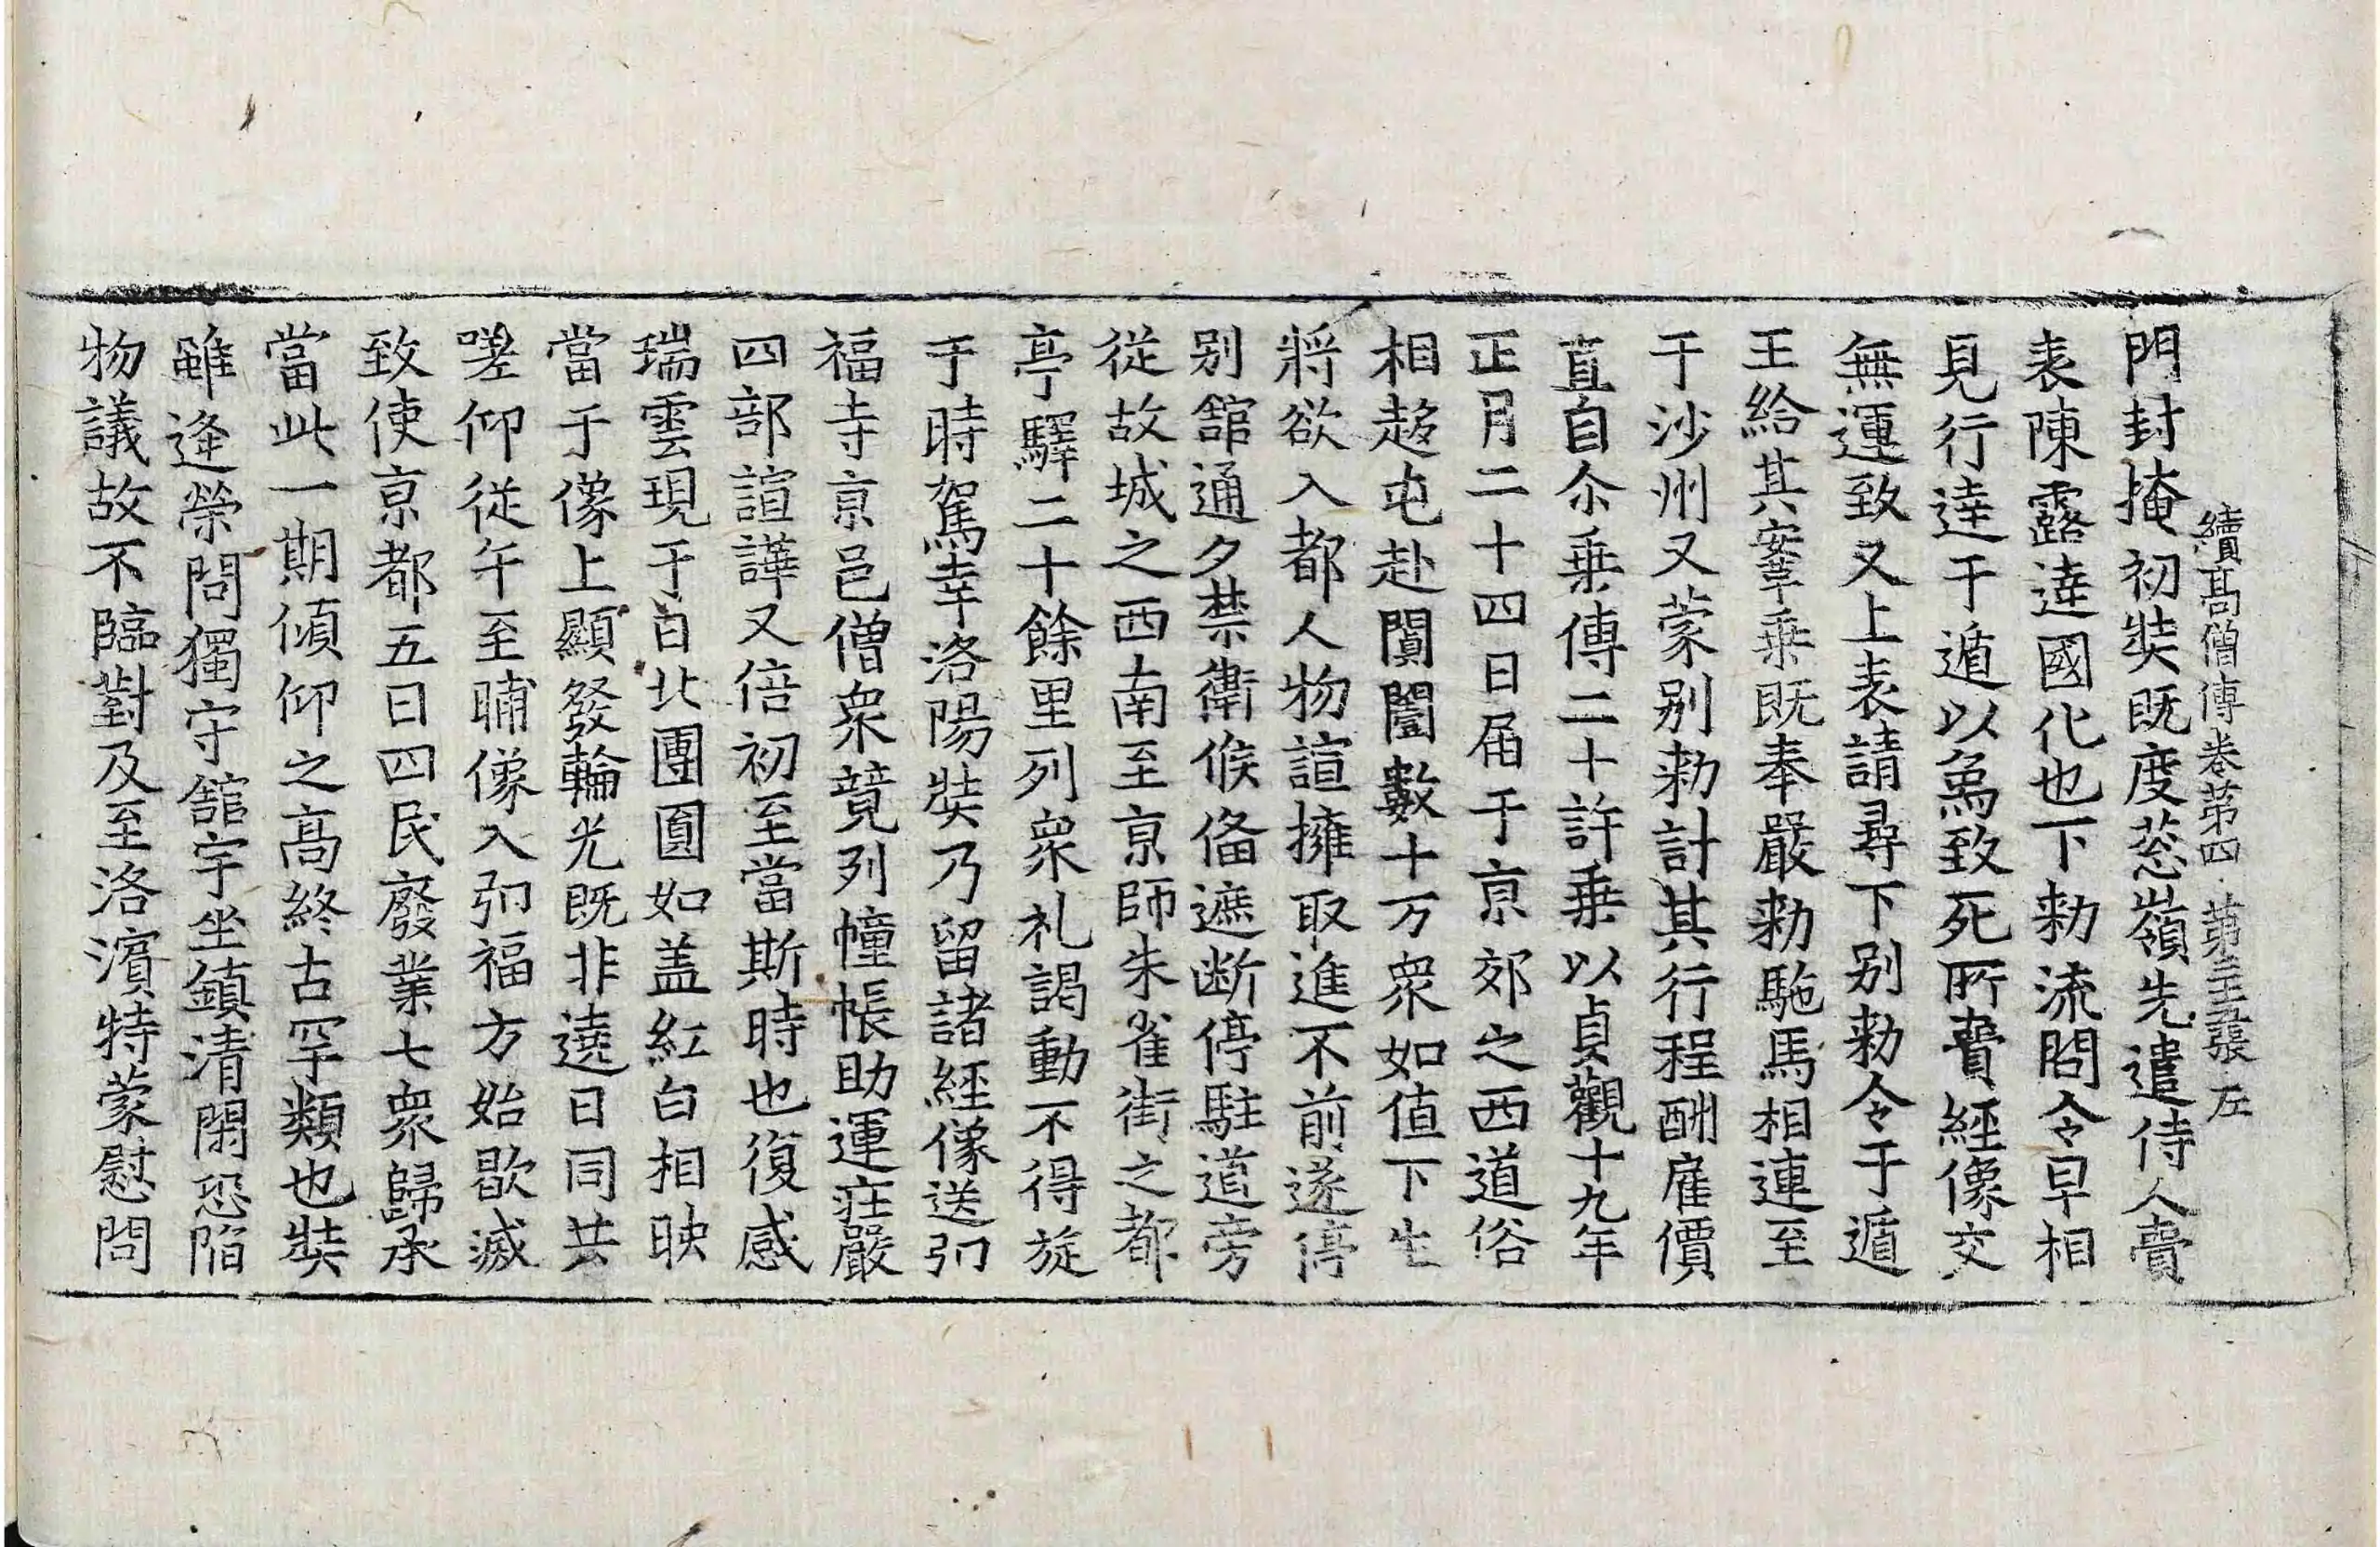 續高僧傳卷第四　第三十五張　左
門封掩初奘既度葱嶺先遣侍人賷
表陳露達國化也下勑流問令早相
見行達于遁以爲致死所賷經像交
無運致又上表請尋下别勑令于遁
王給其鞌乗既奉嚴勑駞馬相連至
于沙州又蒙别勑計其行程酬雇價
直自尒乗傳二十許乗以貞觀十九年
正月二十四日届于亰郊之西道俗
相趍屯赴闐闛數十万衆如值下生
將欲入都人物諠擁取進不前遂停
别舘通夕禁衛候俻遮断停駐道旁
從故城之西南至亰師朱雀街之都
亭驛二十餘里列衆礼謁動不得旋
于時駕幸洛陽奘乃留諸經像送弘
福寺亰邑僧衆竟列幢帳助運庄嚴
四部諠譁又倍初至當斯時也復感
瑞雲現于日北團圓如盖紅白相映
當于像上顯發輪光既非遶日同共
嗟仰從午至晡像入弘福方始歇滅
致使亰都五日四民廢業七衆歸承
當此一期傾仰之髙終古罕類也奘
雖逢榮問獨守舘宇坐鎮清閑恐陷
物議故不臨對及至洛濱特蒙慰問